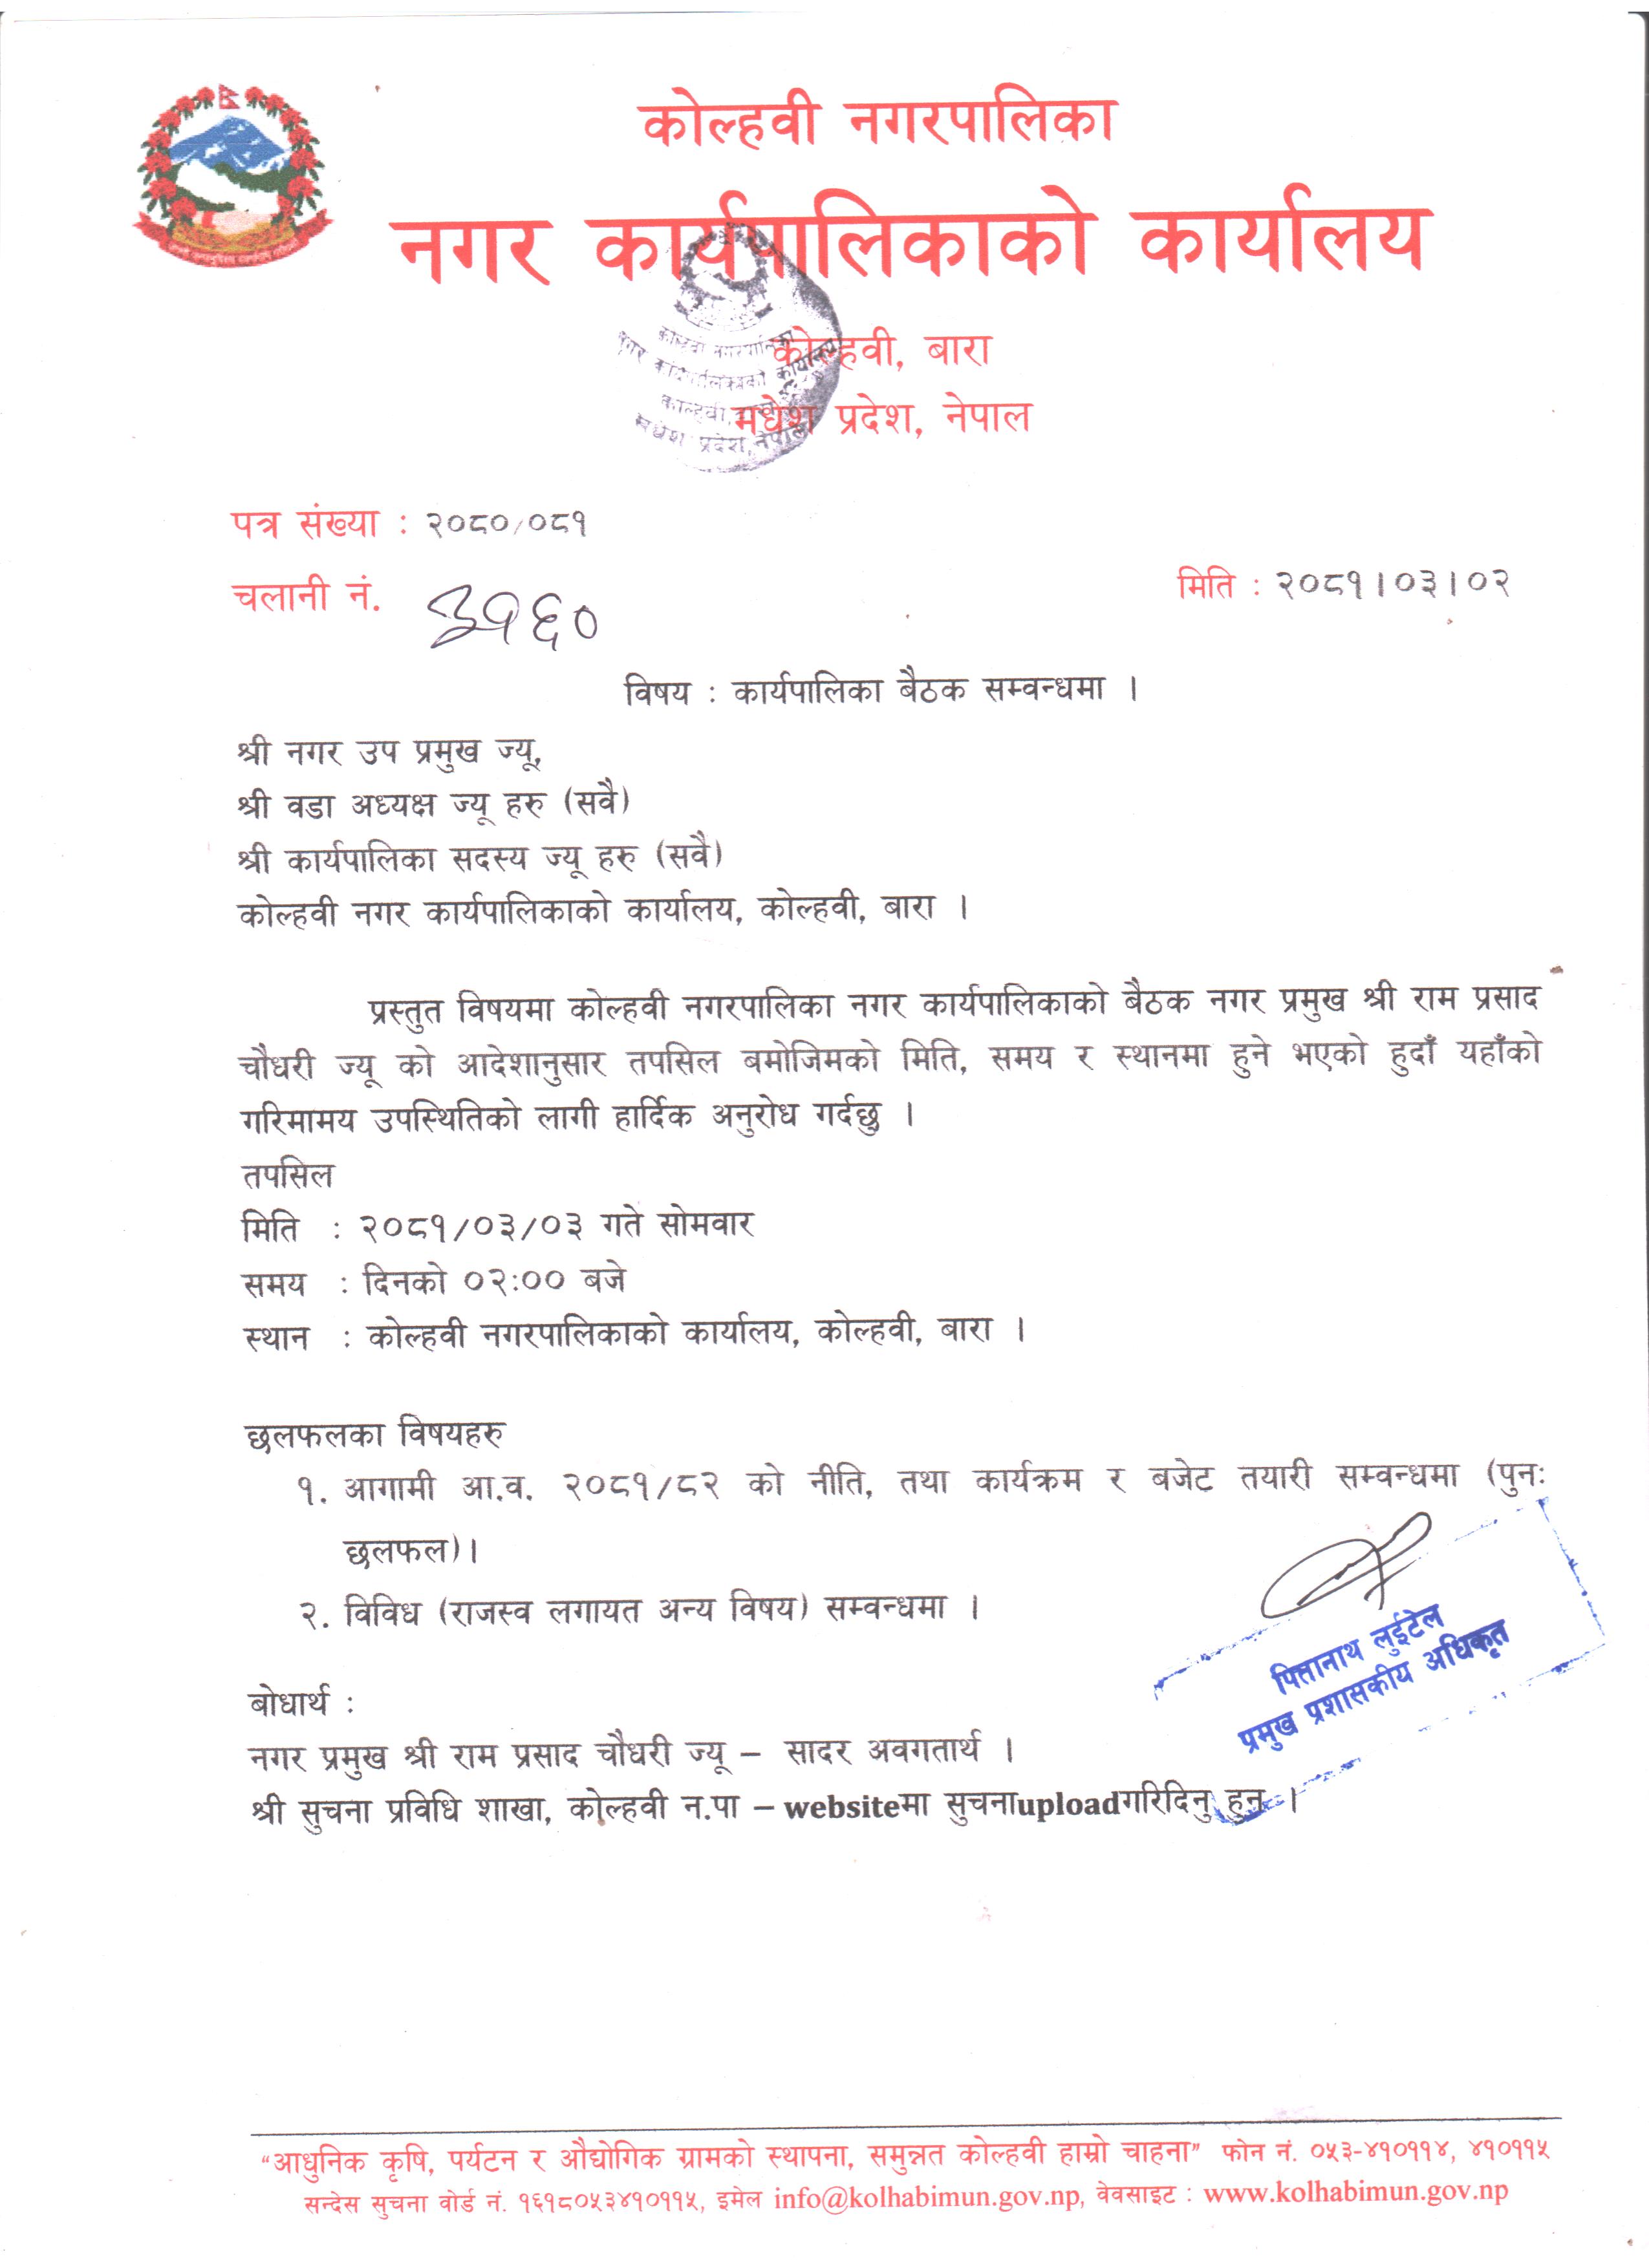 कोल्हवी नगरपालिका
नगर कार्यपालिकाको कार्यालय
कोल्हवी, बारा
मधेश प्रदेश, नेपाल
कोल्हवी नगरपालिका
नगर कार्यपालिकाको कार्यालय
कोल्हवी, बारा
मधेश प्रदेश, नेपाल
पत्र संख्या : २०८०/०८१
चलानी नं. ३१६०
मिति : २०८१।०३।०२
विषय : कार्यपालिका बैठक सम्वन्धमा ।
श्री नगर उप प्रमुख ज्यू,
श्री वडा अध्यक्ष ज्यू हरु (सवै)
श्री कार्यपालिका सदस्य ज्यू हरु (सवै)
कोल्हवी नगर कार्यपालिकाको कार्यालय, कोल्हवी, बारा ।
प्रस्तुत विषयमा कोल्हवी नगरपालिका नगर कार्यपालिकाको बैठक नगर प्रमुख श्री राम प्रसाद
चौधरी ज्यू को आदेशानुसार तपसिल बमोजिमको मिति, समय र स्थानमा हुने भएको हुदाँ यहाँको
गरिमामय उपस्थितिको लागी हार्दिक अनुरोध गर्दछु ।
तपसिल
मिति : २०८१/०३/०३ गते सोमवार
समय : दिनको ०२:०० बजे
स्थान : कोल्हवी नगरपालिकाको कार्यालय, कोल्हवी, बारा ।
छलफलका विषयहरु
१. आगामी आ.व. २०८१/८२ को नीति, तथा कार्यक्रम र बजेट तयारी सम्वन्धमा (पुनः
छलफल)।
२. विविध (राजस्व लगायत अन्य विषय) सम्वन्धमा ।
पित्तानाथ लुईटेल
प्रमुख प्रशासकीय अधिकृत
बोधार्थ :
नगर प्रमुख श्री राम प्रसाद चौधरी ज्यू – सादर अवगतार्थ ।
श्री सुचना प्रविधि शाखा, कोल्हवी न.पा – websiteमा सुचनाuploadगरिदिनु हुन ।
“आधुनिक कृषि, पर्यटन र औद्योगिक ग्रामको स्थापना, समुन्नत कोल्हवी हाम्रो चाहना” फोन नं. ०५३-४१०११४, ४१०११५
सन्देस सुचना वोर्ड नं. १६१८०५३४१०११५, इमेल info@kolhabimun.gov.np, वेवसाइट : www.kolhabimun.gov.np